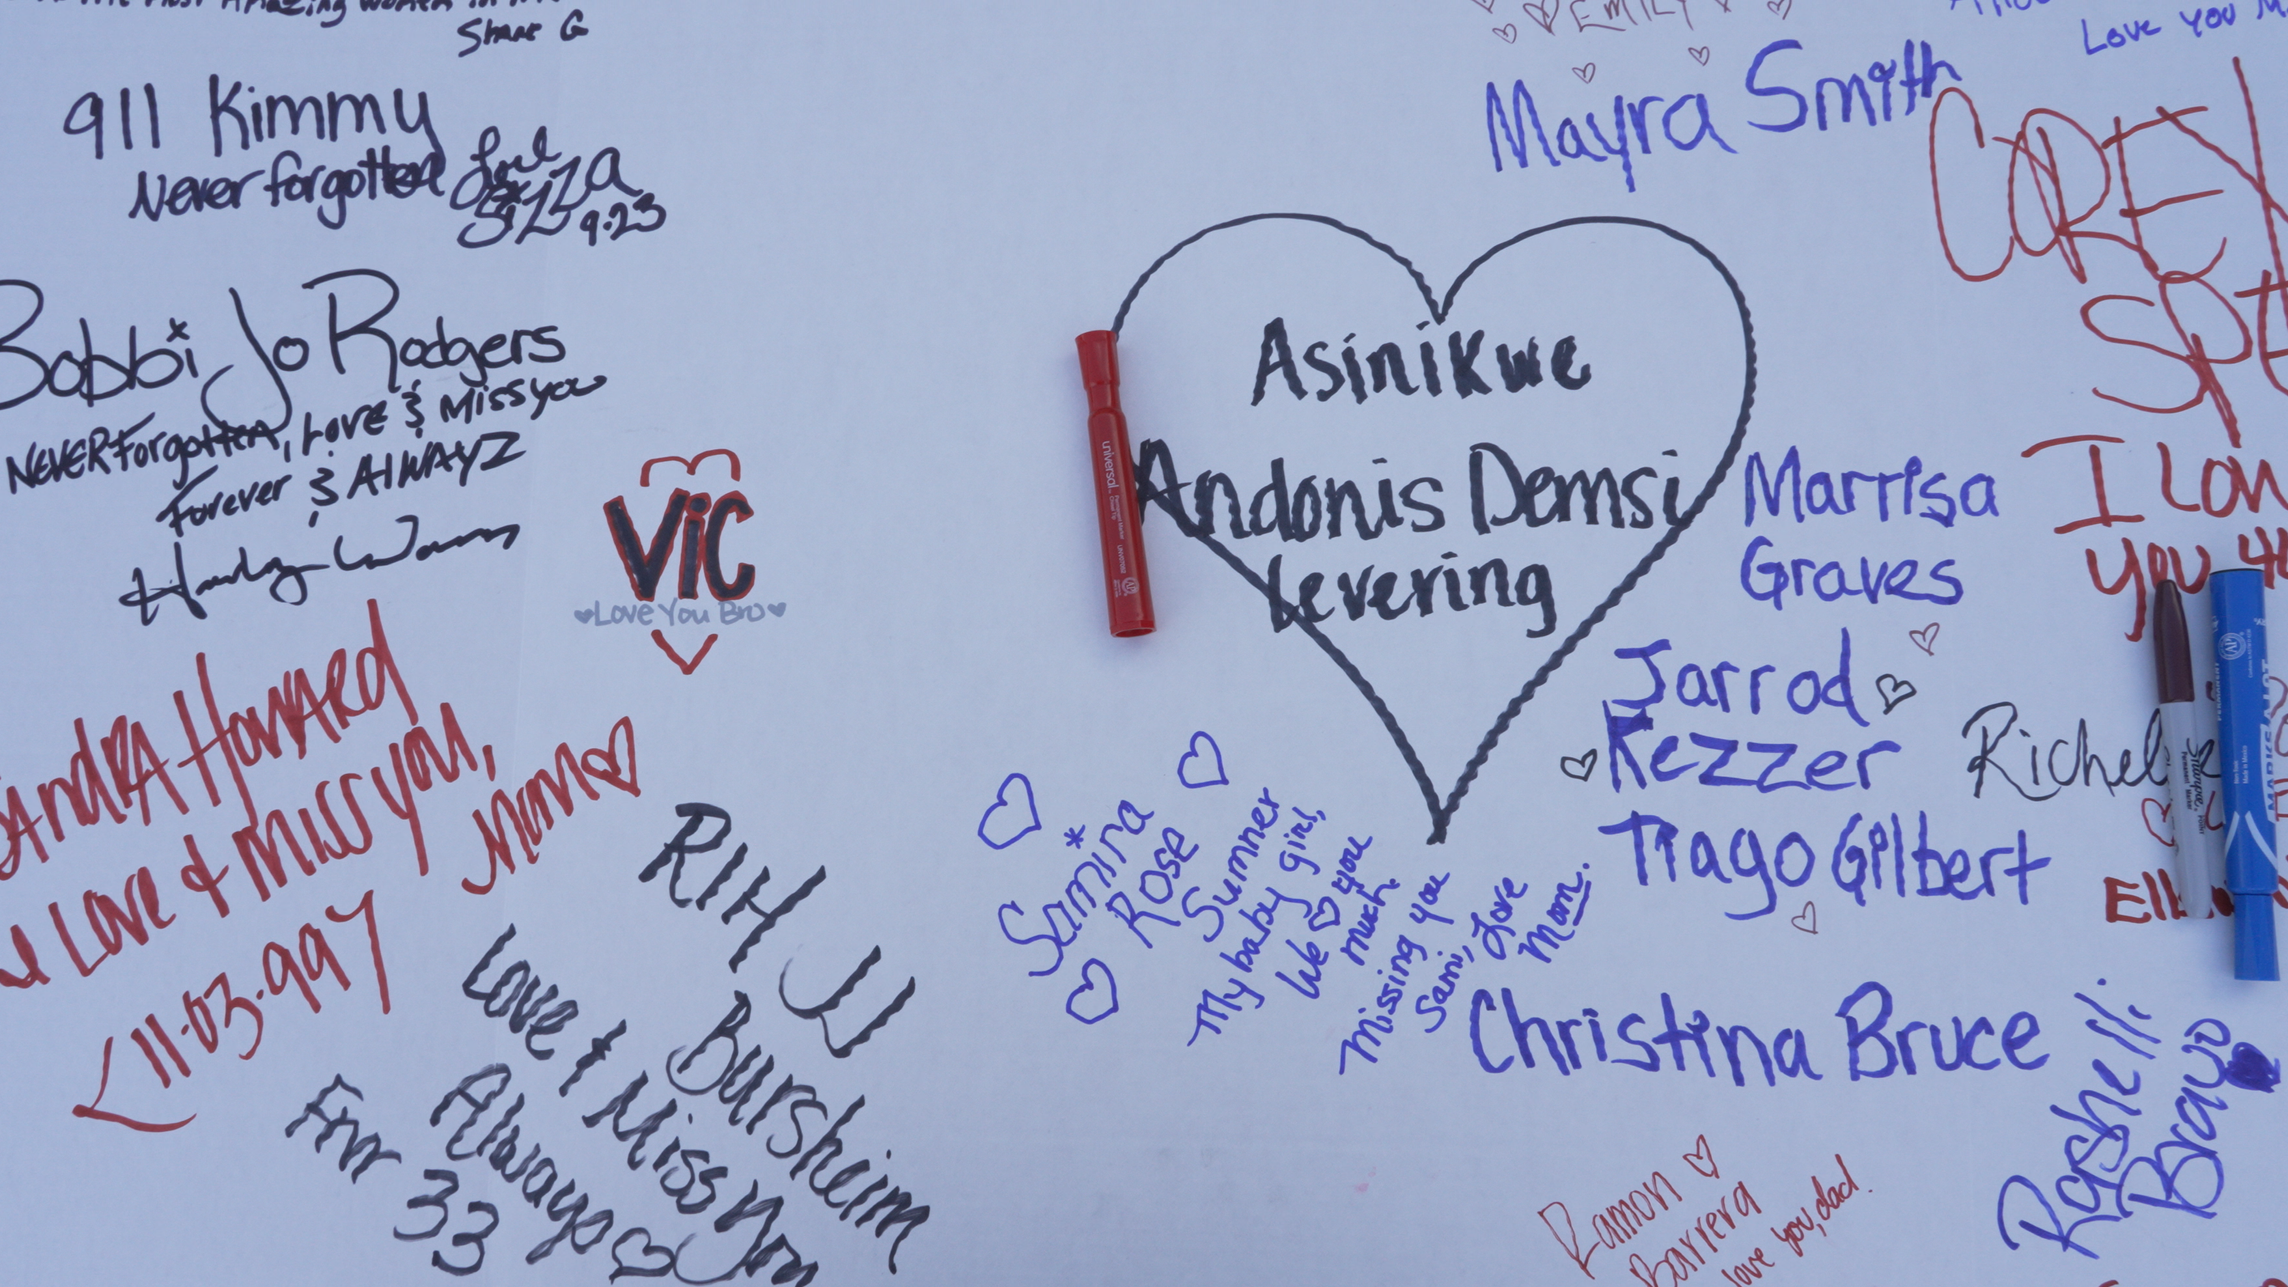 Most Amazing women in
Shane G
911 Kimmy
Never forgotten
9.23
Bobbi Jo Rodgers
NEVER Forgotten, Love & Miss you
Forever & AlWAYZ
ViC
Love You Bro
HowARd
I Love & Miss you,
Mom
11.03.997
RIH JJ
Bursheim
Love & Miss You
Always
Frvr 33
EMILY
Love You
Mayra Smith
COREY
Asinikwe
Andonis Demsi
levering
universal
Marrisa
Graves
I Lov
you
Jarrod
Kezzer
Tiago Gilbert
Richel
Sharpie
Samira
Rose
Sumner
My baby girl,
We you
much.
Missing you
Sami, Love
Mom.
Christina Bruce
Rashelli
Bravo
Ramon
Barrera
love you, dad.